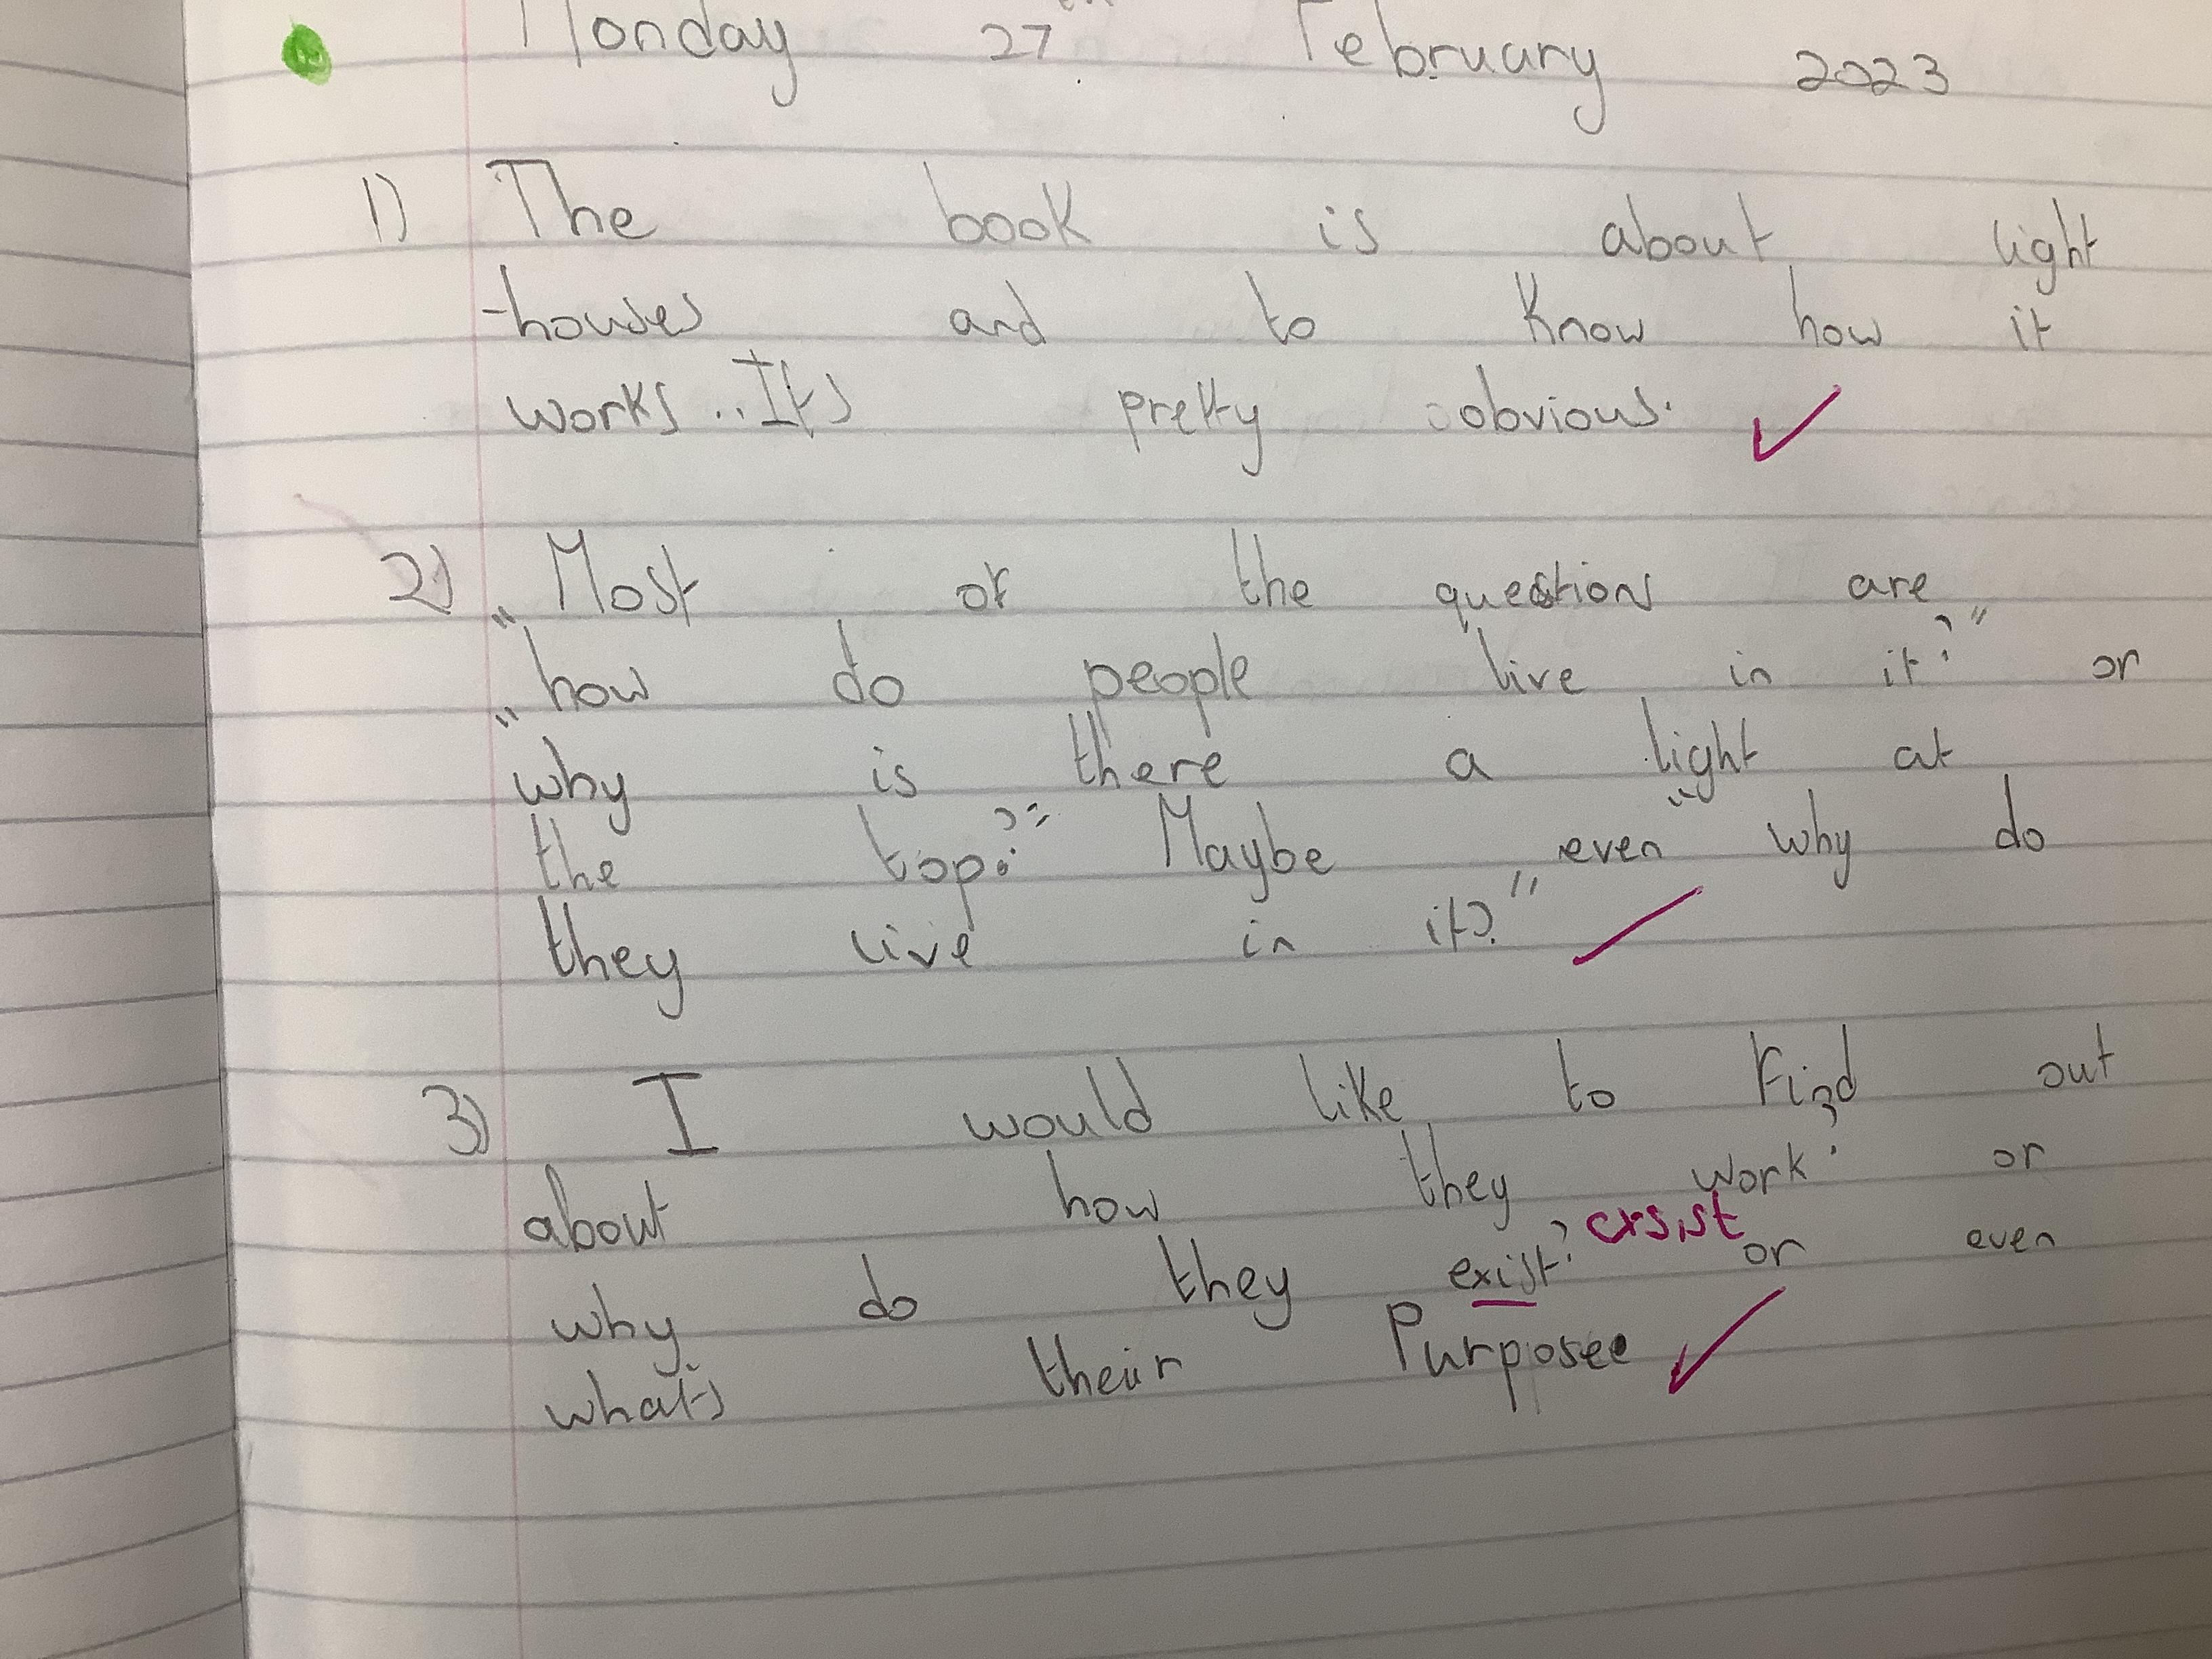 Monday 27th February 2023
1) The book is about light
-houses and to know how it
works..Its pretty obvious.
2) „Most of the questions are
„how do people live in it?" or
why is there a light at
the top?" Maybe even "why do
they live in it?"
3) I would like to find out
about how they work? or
why do they exist? exsist or even
what's their Purpose